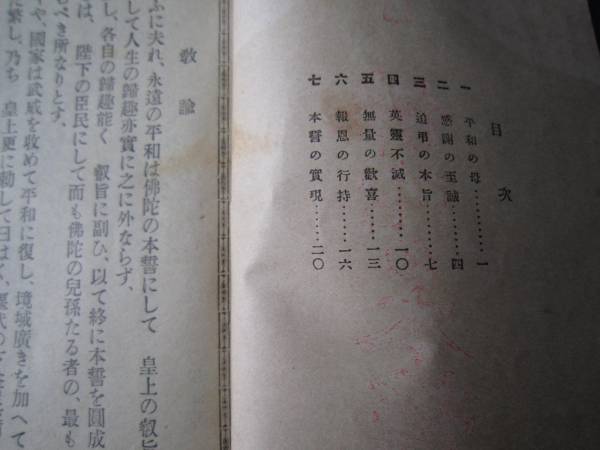 目次
一 平和の母………一
二 感謝の至誠……四
三 追弔の本旨……七
四 英靈不滅……一〇
五 無量の歡喜……一三
六 報恩の行持……一六
七 本誓の實現……二〇
敎諭
ふに夫れ、永遠の平和は佛陀の本誓にして 皇上の叡旨
して人生の歸趣亦實に之に外ならず、
し、各自の歸趣能く 叡旨に副ひ、以て終に本誓を圓成
は、 陛下の臣民にして而も佛陀の兒孫たる者の、最も
べき所なりとす。
や、國家は武威を收めて平和に復し、境域廣きを加へて
に繁し、乃ち 皇上更に勅して曰はく、